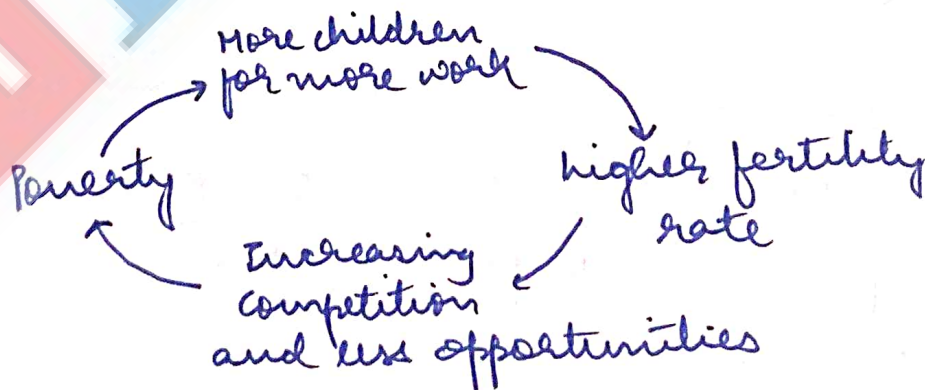 More children
for more work
Poverty
higher fertility
rate
Increasing
competition
and less opportunities